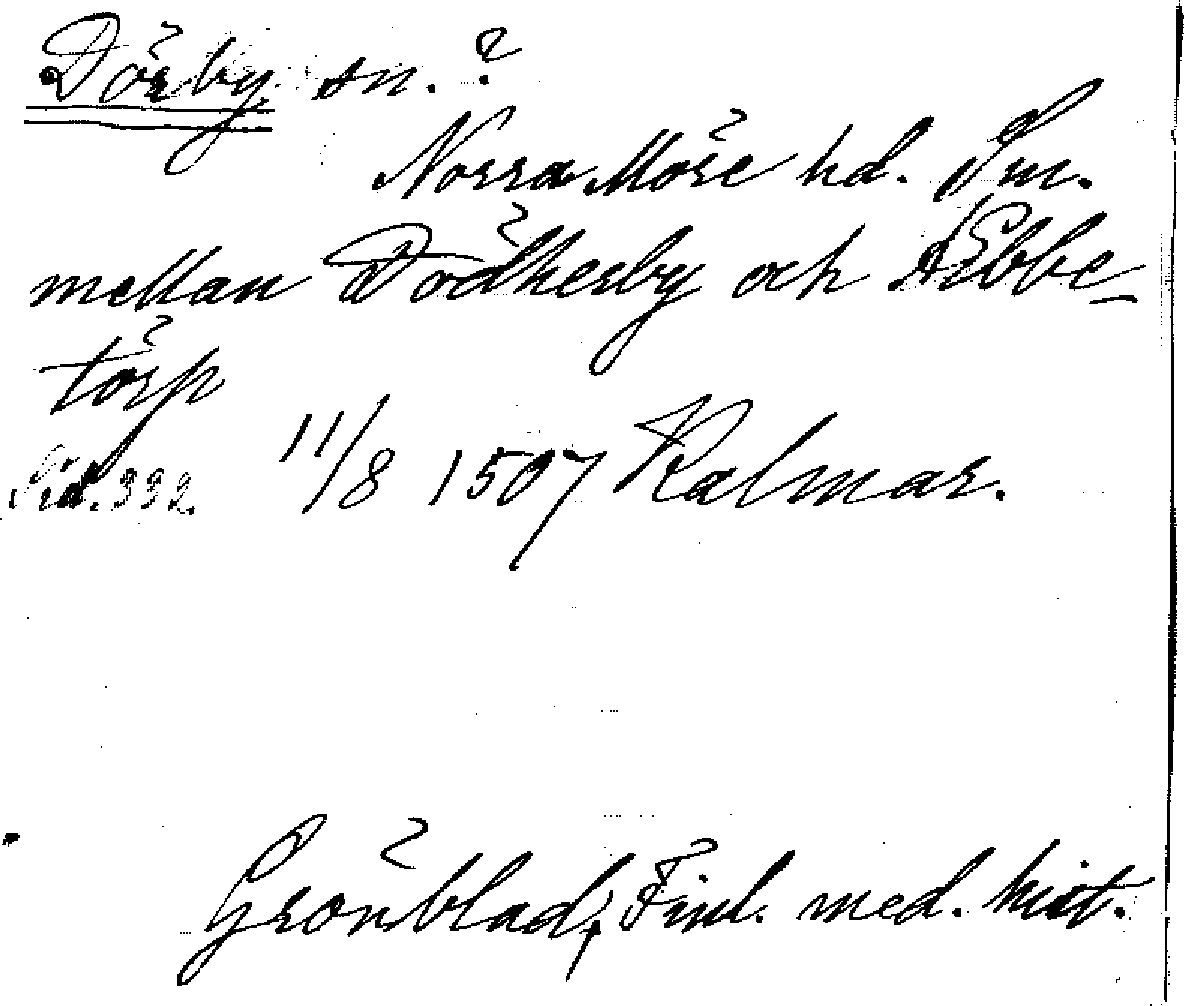 Dörby sn.?
Norra Möre hd. Sm.
mellan Dödherby och Æbbe-
törp
Sid. 332. 11/8 1507 Kalmar.
Grönblad, Finl. med. hist.